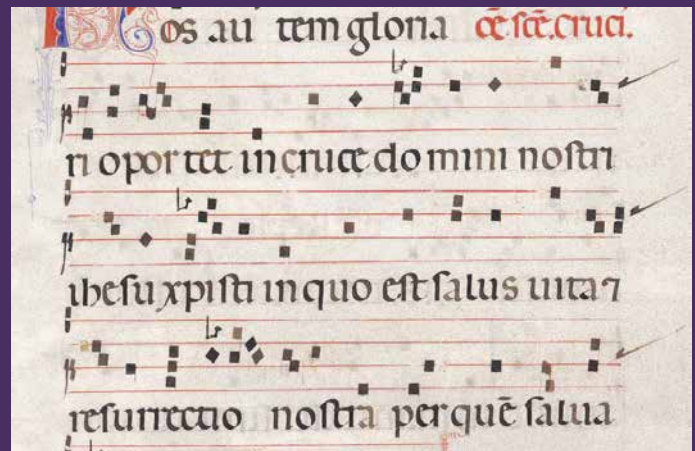 os au tem gloria cē.scē.cruci.
ri opor tet in cruce do mini nostri
ihesu xpisti in quo est salus uita ⁊
resurrectio nostra per quē salua